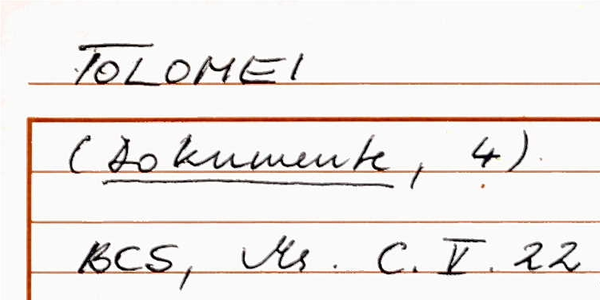 TOLOMEI
(Dokumente, 4)
BCS, Ms. C. V. 22